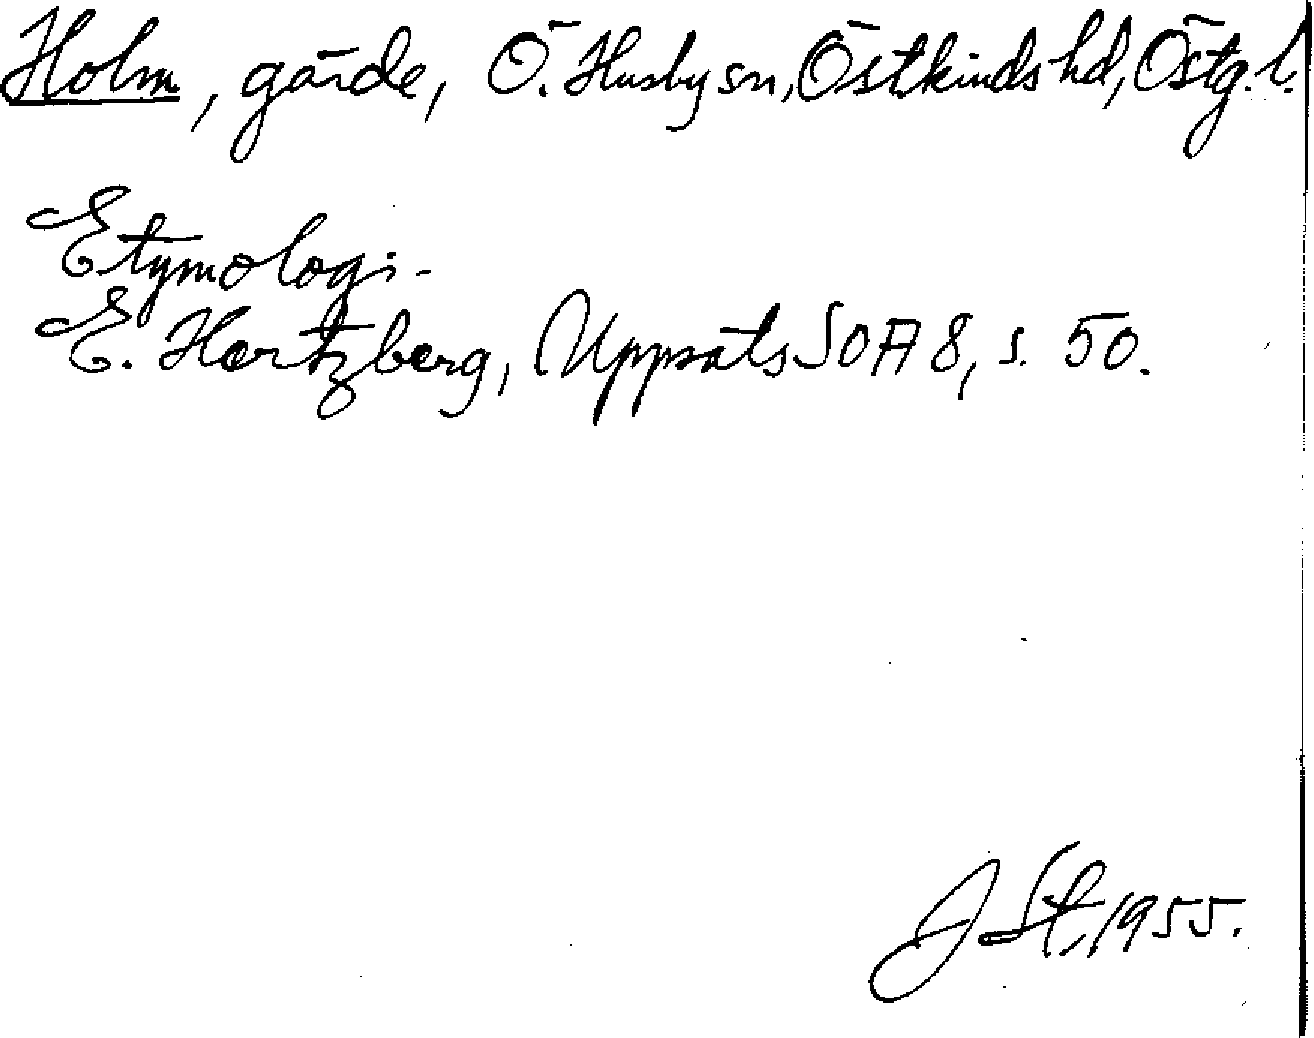 Holm, gärde, Ö. Husby sn, Östkinds hd, Östg. l.
Etymologi.
E. Hertzberg, Uppsats SOA 8, s. 50.
J St, 1955.